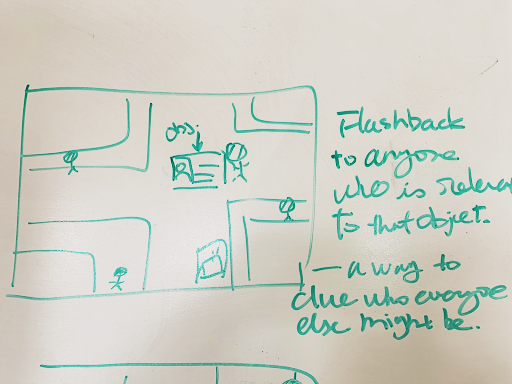 Flashback
to anyone
who is releva
to that object.
— a way to
clue who everyone
else might be.